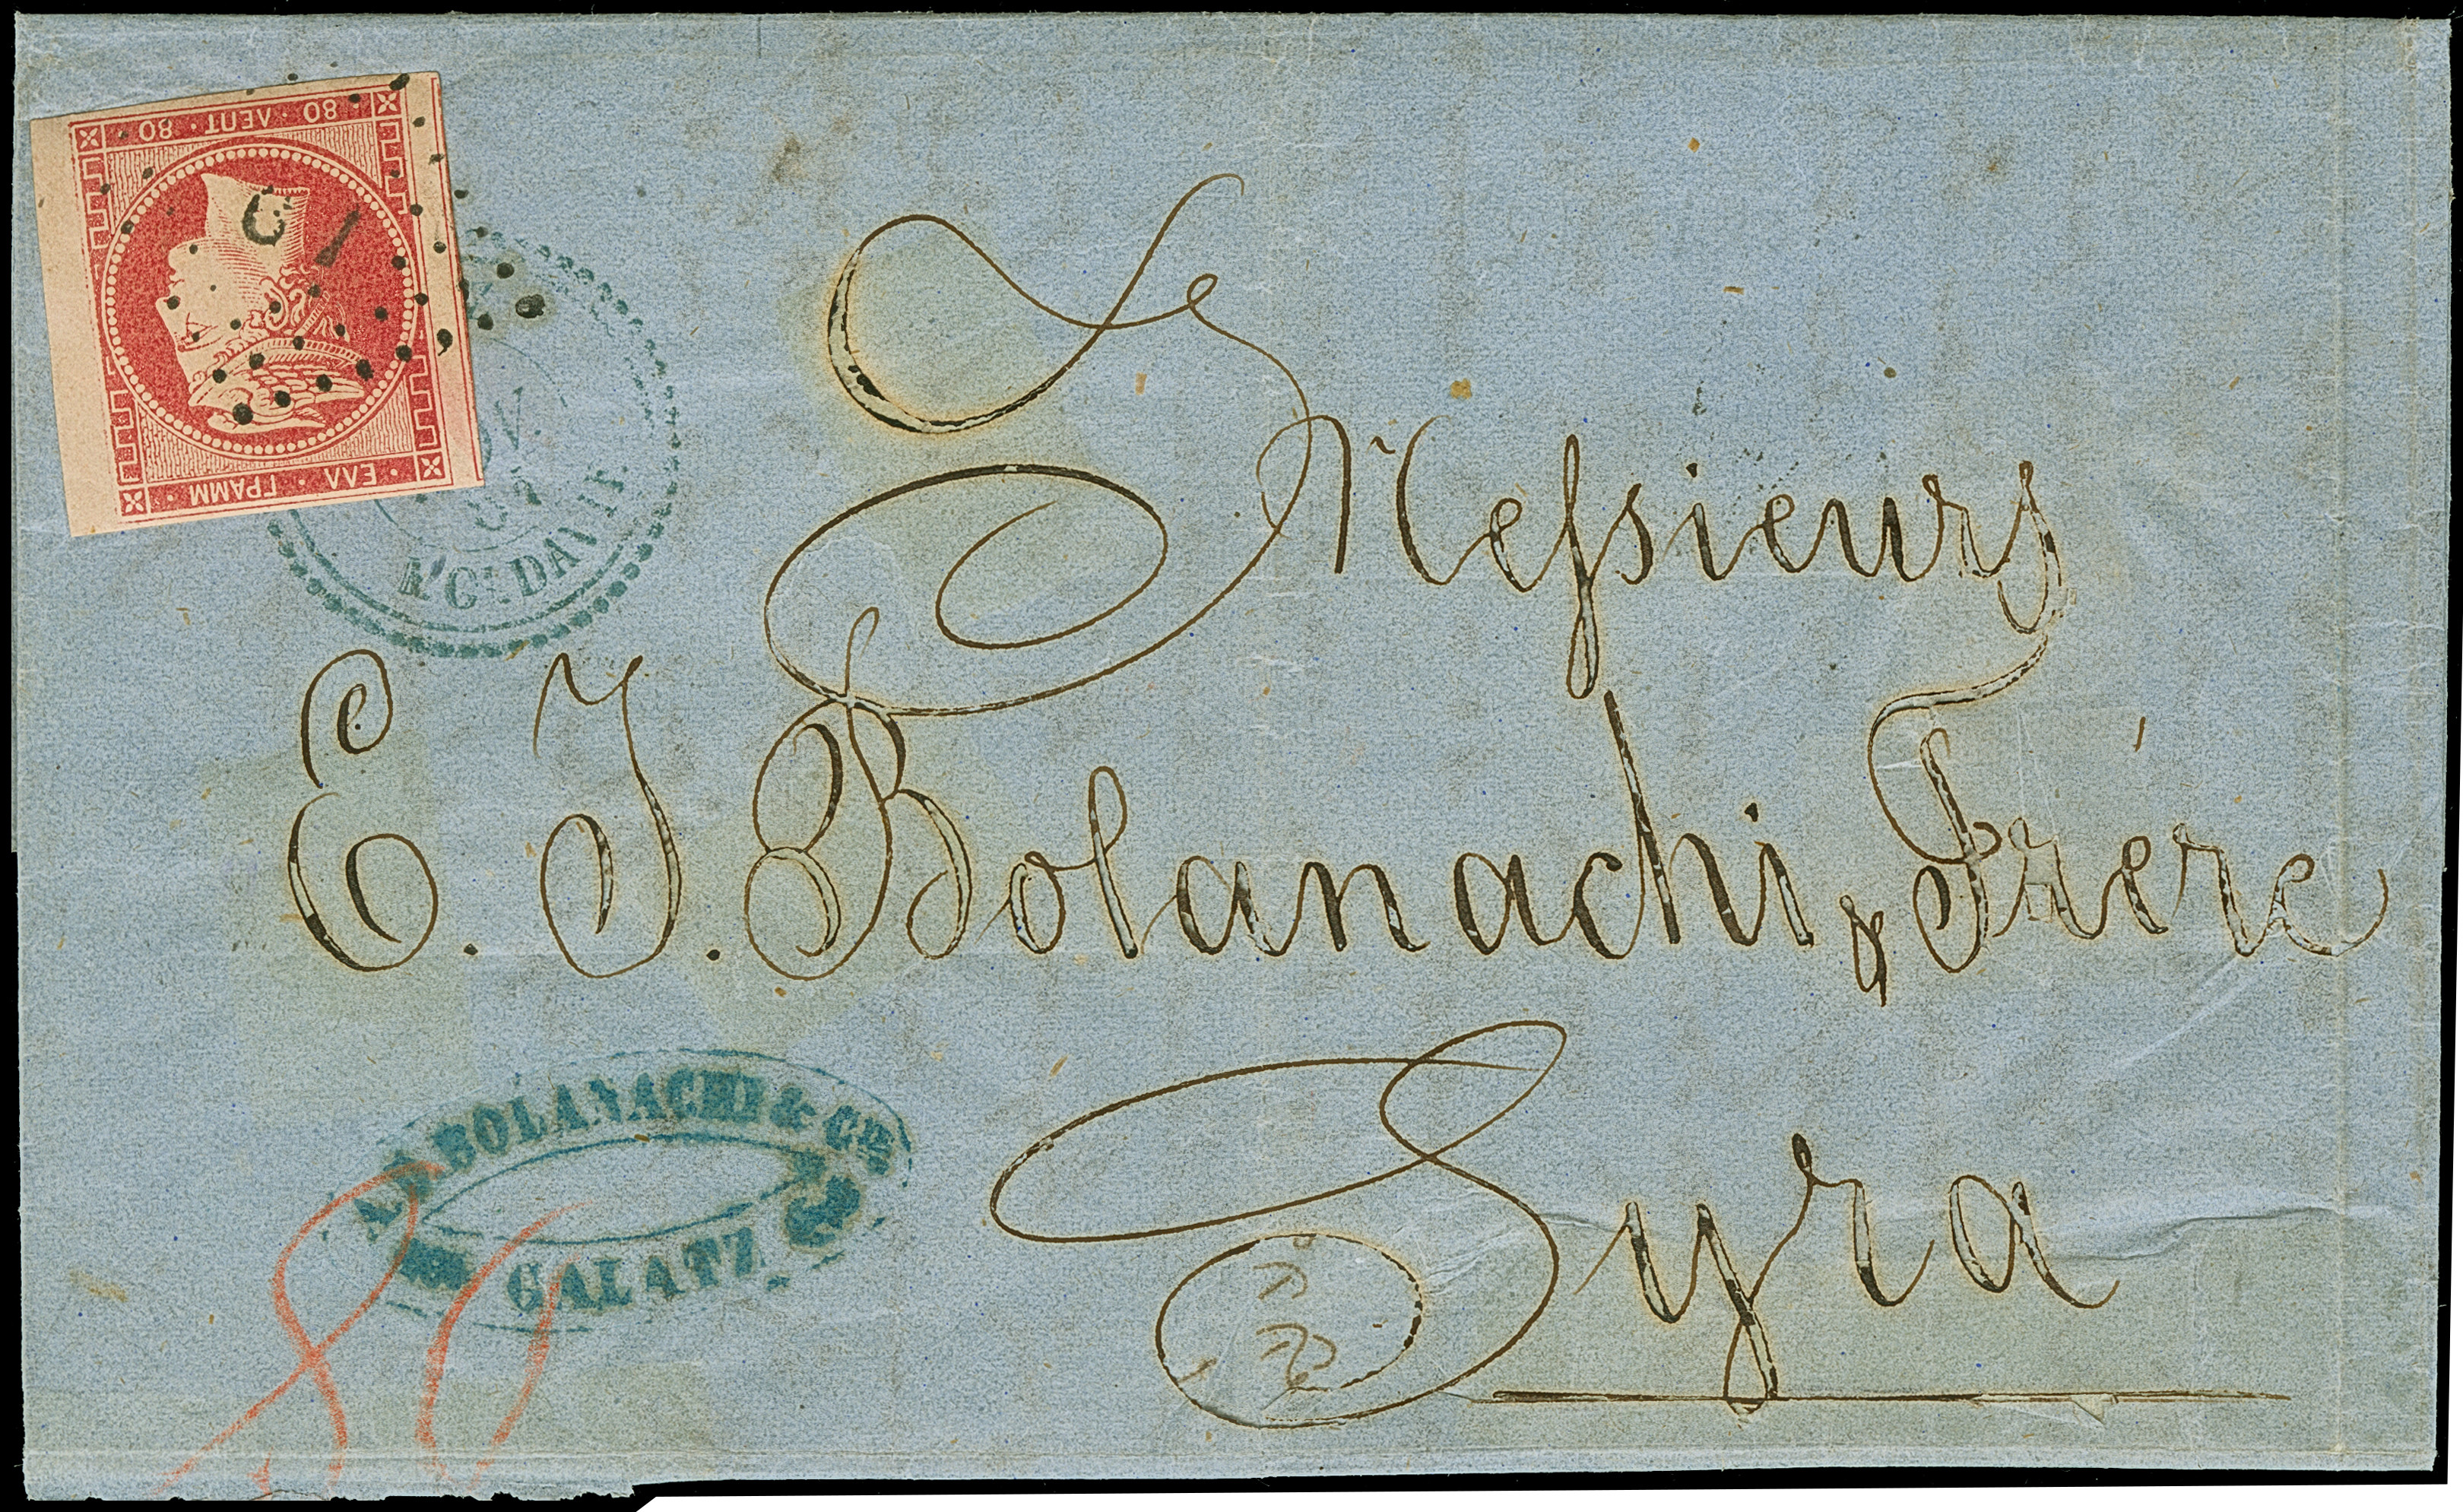 80 · ΛΕΠΤ · 80
ΓΡΑΜΜ · ΕΛΛ
ΜΟLDAVIE
Messieurs
E. J. Bolanachi & Frère
Syra
BOLANACHI & CIE
GALATZ
80